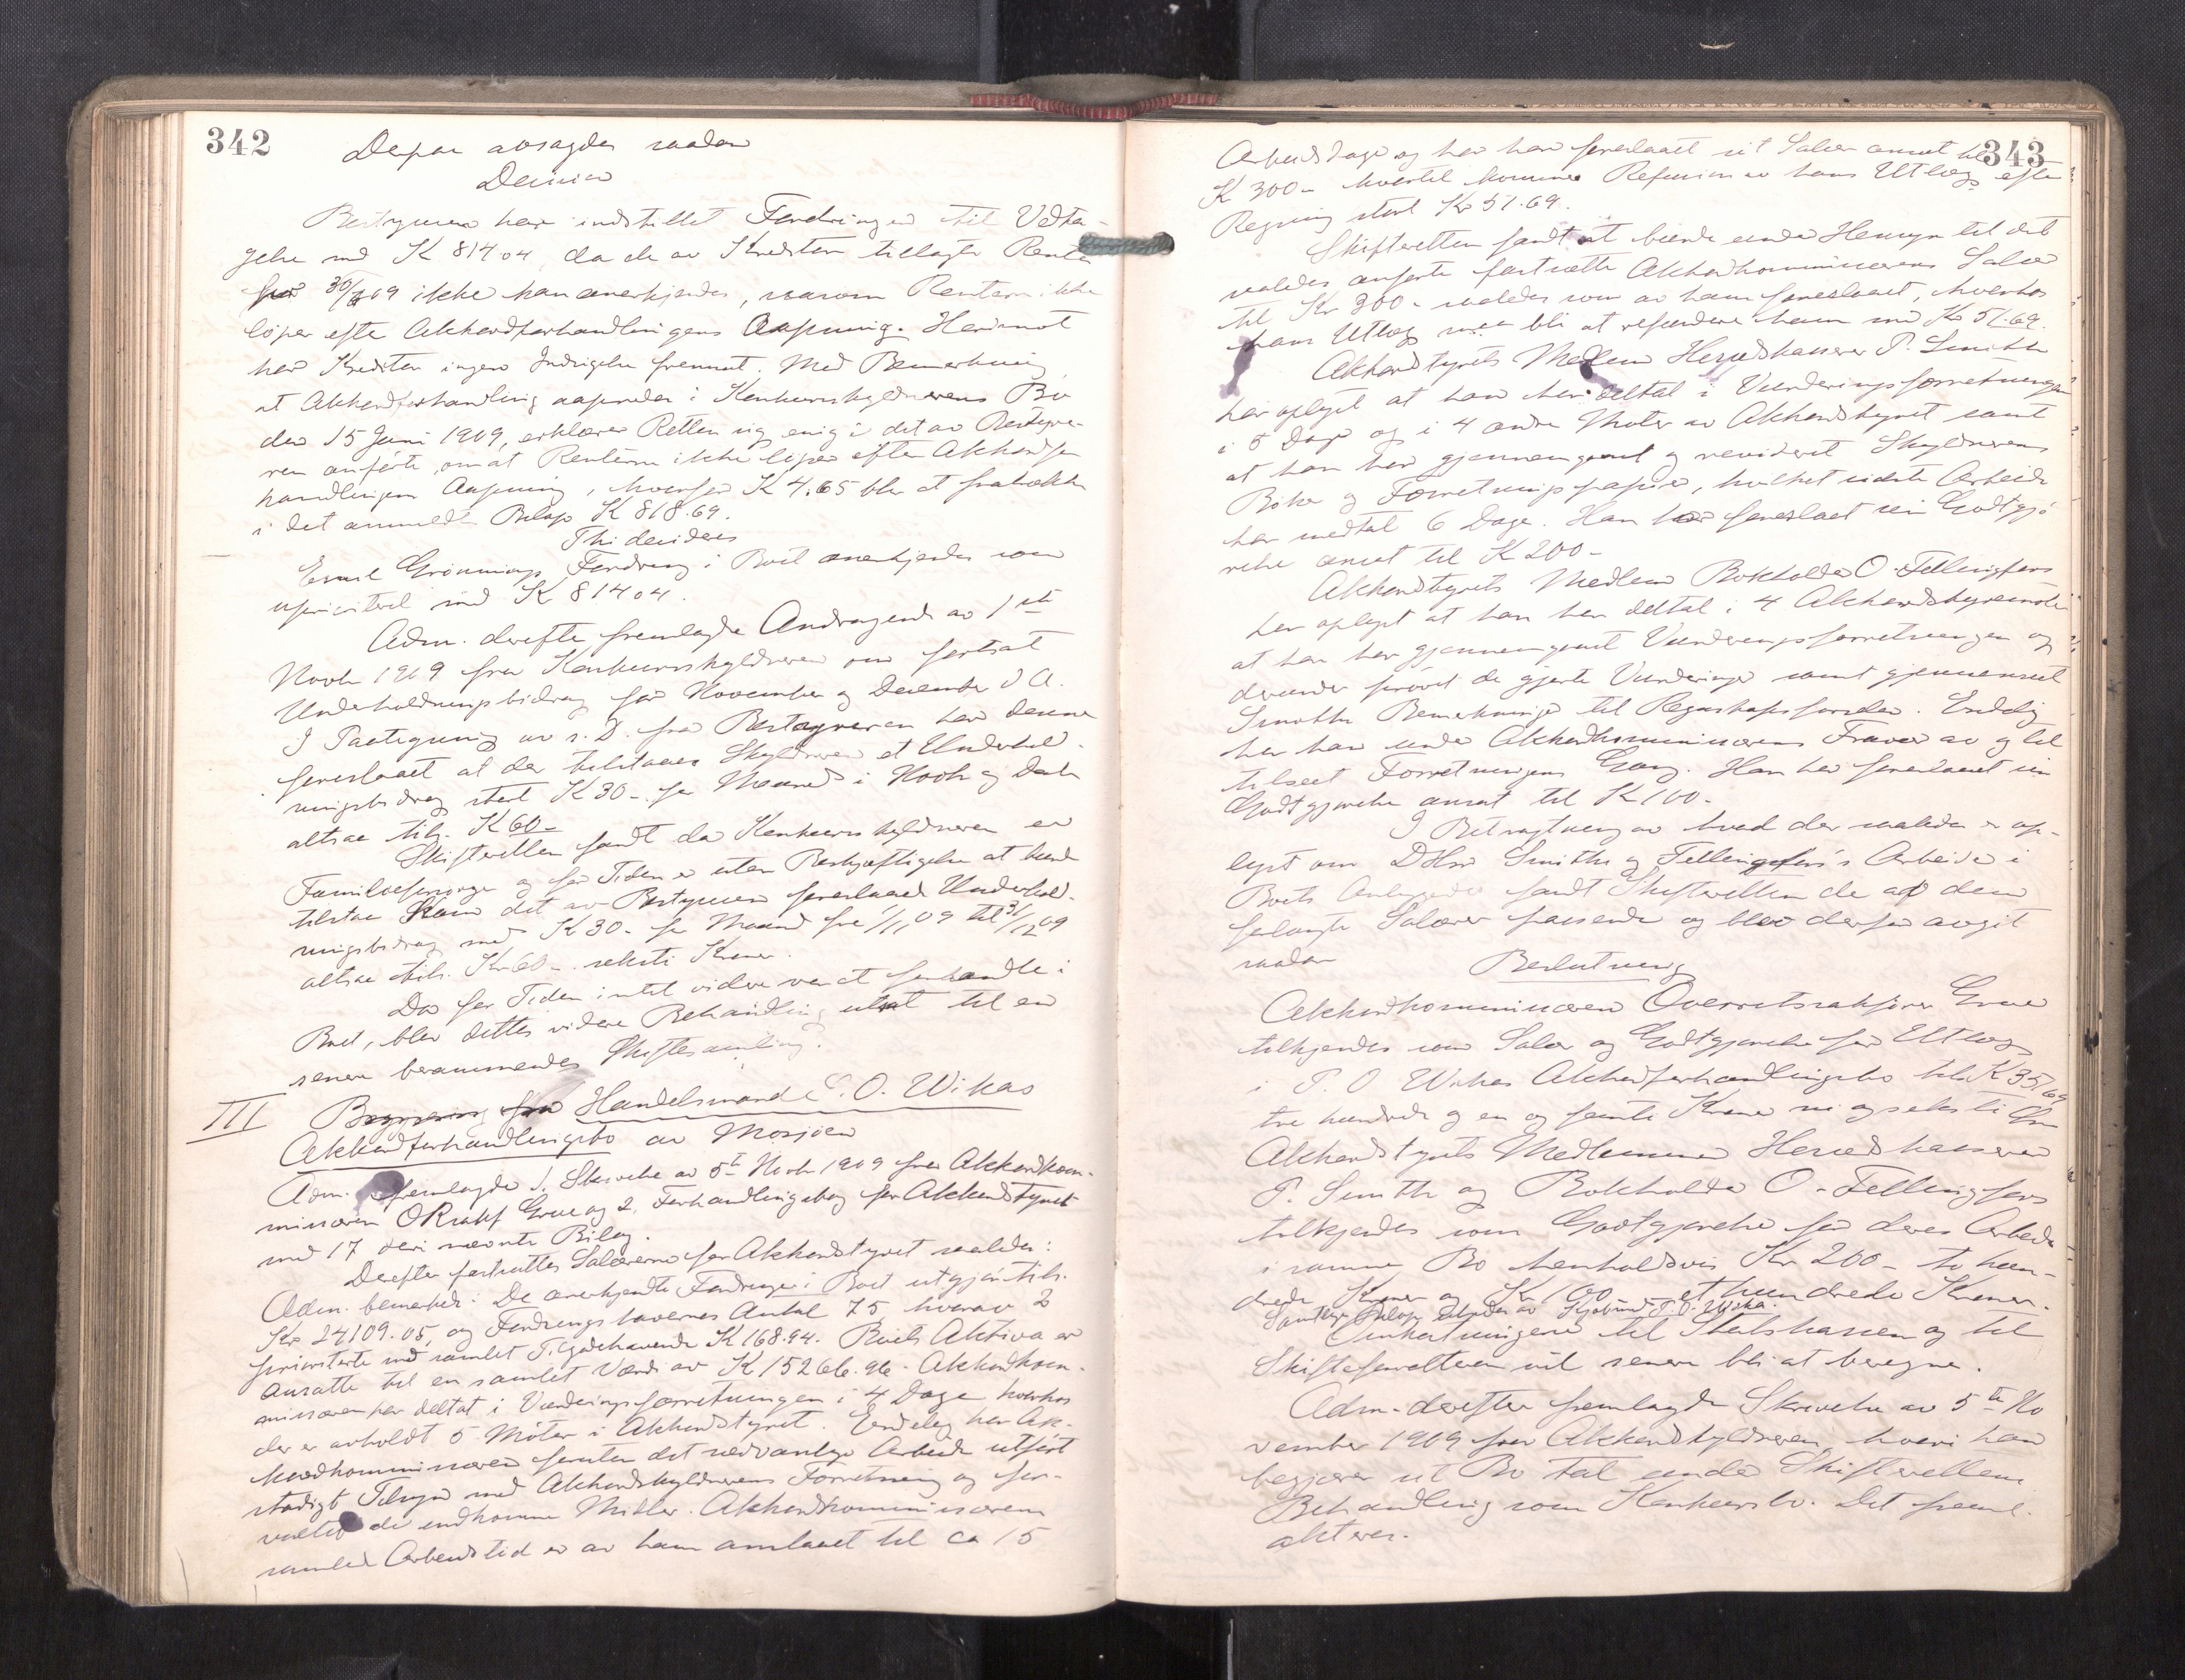 342
Derpaa avsagdes saadan
Decision
Bestyreren har indstillet Fordringen til Vedta-
gelse med K 814 04, da de av Kreditor tillagte Renter
fra 30/6 09 ikke kan anerkjendes, saasom Renterne ikke
löper efter Akkordforhandlingens Aapning. Herimot
har Kreditor ingen Indsigelse fremsat. Med Bemerkning
at Akkordforhandling aapnedes i Konkursskyldnerens Bo
den 15 Juni 1909, erklærer Retten sig enig i det av Bestyre-
ren anförte, om at Renterne ikke löper efter Akkordfor
handlingens Aapning, hvorfor K 4.65 blir at fratrække
i det anmeldte Belöp K 818.69.
Thi decideres
Emil Grönnings Fordring i Boet anerkjendes som
uprioritert med K 814 04.
Adm. derefter fremlagde Andragende av 1ste
Novbr 1909 fra Konkursskyldneren om fortsat
Underholdningsbidrag for November og December d A.
I Paategning av s. D. fra Bestyreren har denne
foreslaaet at der tilstaaes Skyldneren et Underhold-
ningsbidrag stort K 30- pr Maaned i Novbr og Decbr
altsaa tils. K 60-
Skifteretten fandt da Konkursskyldneren er
Familieforsörger og for Tiden er uten Beskjæftigelse at burde
tilstaa ham det av Bestyreren foreslaaede Underhold-
ningsbidrag med K 30- pr Maaned fra 1/11 09 til 31/12 09
altsaa tils. Kr 60- seksti Kroner.
Da for Tiden intet videre var at forhandle i
Boet, blev dettes videre Behandling utsat til en
senere berammendes Skiftesamling.
III Handelsmand P. O. Wikas
Akkordforhandlingsbo av Mosjöen
Adm. fremlagde 1. Skrivelse av 5te Novbr 1909 fra Akkordkom-
missæren ORsakf Grue og 2. Forhandlingsbog for Akkordstyret
med 17 deri nævnte Bilag.
Derefter fastsattes Salærerne for Akkordstyret saaledes:
Adm. bemerket: De anerkjendte Fordringer i Boet utgjör tils.
Kr 24109.05, og Fordringshavernes Antal 75, hvorav 2
prioriterte med samlet Tilgodehavende K 168.94. Boets Aktiva er
ansatte til en samlet Værdi av K 15266.96. Akkordkom-
missæren har deltat i Vurderingsforretningen i 4 Dage hvorhos
der er avholdt 5 Möter i Akkordstyret. Endelig har Ak-
kordkommissæren foruten det sedvanlige Arbeide utfört
stadigt Tilsyn med Akkordskyldnerens Forretning og for-
valtet de indkomne Midler. Akkordkommissærens
samlede Arbeidstid er av ham anslaaet til ca 15
343
Arbeidsdage og har han foreslaaet sit Salær ansat til
K 300- hvortil kommer Refusion av hans Utlæg efter
Regning stort Kr 51.69.
Skifteretten fandt at burde under Hensyn til det
saaledes anförte fastsætte Akkordkommissærens Salær
til Kr 300- saaledes som av ham foreslaaet, hvorhos
hans Utlæg maa bli at refundere ham med Kr 51.69.
Akkordstyrets Medlem Herredskasserer P. Smith
har oplyst at han har deltat i Vurderingsforretningen
i 5 Dage og i 4 andre Möter av Akkordstyret samt
at han har gjennemgaaet og revideret Skyldnerens
Böker og Forretningspapirer, hvilket sidste Arbeide
har medtat 6 Dage. Han har foreslaaet sin Godtgjö
relse ansat til K 200-
Akkordstyrets Medlem Bokholder O. Fellingfors
har oplyst at han har deltat i 4 Akkordstyremöter
at han har gjennemgaaet Vurderingsforretningen og
derunder prövet de gjorte Vurderinger samt gjennemset
Smiths Bemerkninger til Regnskapsförselen. Endelig
har han under Akkordkommissærens Fravær av og til
tilseet Forretningens Gang. Han har foreslaaet sin
Godtgjörelse ansat til K 100-
I Betragtning av hvad der saaledes er op-
lyst om DHrr Smiths og Fellingfors's Arbeide i
Boets Anliggender fandt Skifteretten de av dem
forlangte Salærer passende og blev derfor avgit
saadan
Beslutning
Akkordkommissæren Overretssakförer Grue
tilkjendes som Salær og Godtgjörelse for Utlæg
i P. O Wikas Akkordforhandlingsbo tils K 351/69
tre hundrede og en og femti Kroner ni og seksti Öre
Akkordstyrets Medlemmer Herredskasserer
P. Smith og Bokholder O. Fellingfors
tilkjendes som Godtgjörelse for deres Arbeide
i samme Bo henholdsvis Kr 200- to hun-
drede Kroner og Kr 100 - et hundrede Kroner.
Samtlige Belöp utredes av Kjöbmd. P. O. Wika.
Omkostningerne til Statskassen og til
Skifteforvalteren vil senere bli at beregne.
Adm. derefter fremlagde Skrivelse av 5te No
vember 1909 fra Akkordskyldneren hvori han
begjærer sit Bo tat under Skifterettens
Behandling som Konkursbo. Det freml.
akteres.